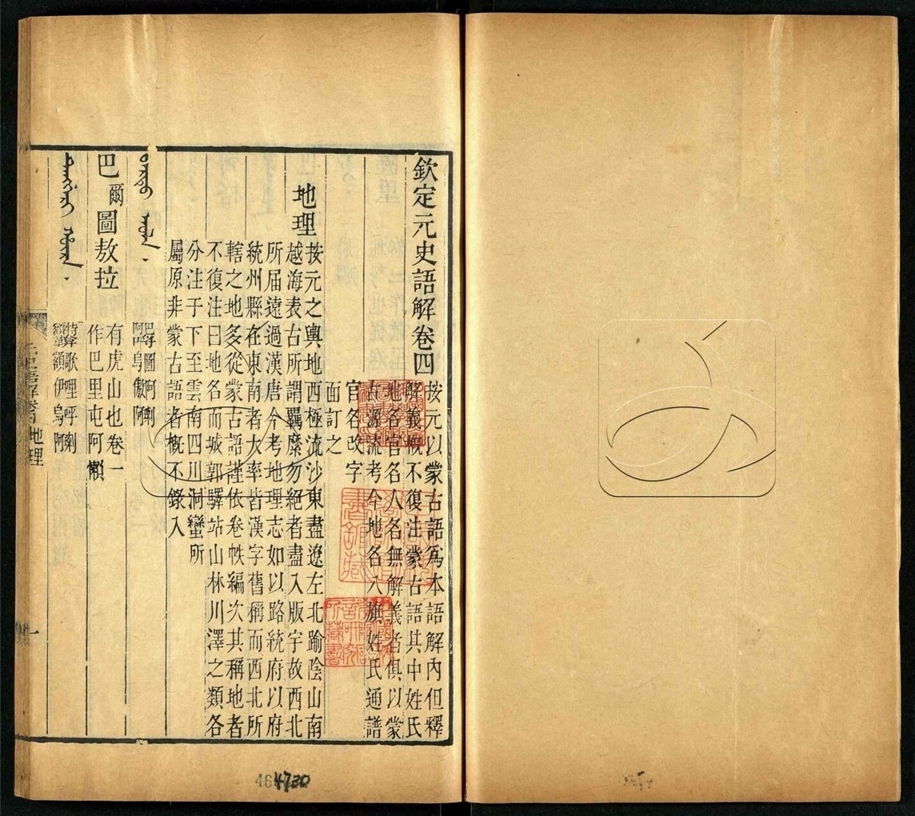 欽定元史語解卷四
按元以蒙古語爲本語解內但釋
解義概不復注蒙古語其中姓氏
地名官名人名無解義者俱以蒙
古源流考今地名八旗姓氏通譜
官名改字
面訂之
地理
按元之輿地西極流沙東盡遼左北踰陰山南
越海表古所謂羈縻勿絕者盡入版宇故西北
所届遠過漢唐今考地理志如以路統府以府
統州縣在東南者大率皆漢字舊稱而西北所
轄之地多從蒙古語謹依卷帙編次其稱地者
不復注曰地名而城郭驛站山林川澤之類各
分注于下至雲南四川洞蠻所
屬原非蒙古語者概不錄入
ᠪᠠᡵᡨᡠ ᠠᠣᠯᠠ
巴爾圖敖拉
有虎山也卷一
作巴里屯阿懶
元史語解 卷四 地理
一
464730